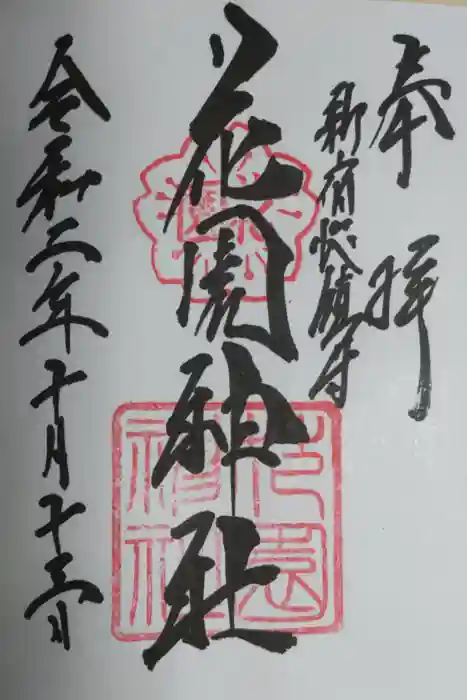 奉拝
新宿総鎮守
花園神社
令和二年十月十三日
花園
神社